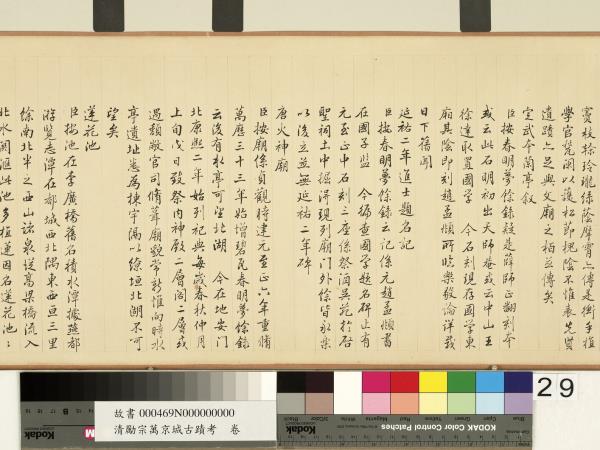 寶枝榦玲瓏綠蔭摩霄上傳是衡手植
學官甃闌以護松節槐陰不惟表先賢
遺蹟亦足與文廟之柏並傳矣
定武本蘭亭敘
臣按春明夢餘錄疑是薛師正翻刻本
或云此石明初出天師菴或云中山王
徐達取置國學 今石刻現存國學東
廂其陰即刻趙孟頫所臨樂毅論詳載
日下舊聞
延祐二年進士題名記
臣按春明夢餘錄云記係元趙孟頫書
在國子監 今編查國學題名碑止有
元至正中石刻三座係祭酒吳苑於啓
聖祠土中掘得現列廟門外餘皆永樂
以後立並無延祐二年碑
唐火神廟
臣按廟係貞觀時建元至正六年重脩
萬曆三十三年始增碧瓦春明夢餘錄
云後有水亭可望北湖 今在地安門
北康熙二年始列祀典每歲春秋仲月
上旬戊日致祭內神殿二層閣二層或
遇頹敝官司脩葺廟貌常新惟向時水
亭遺址悉為棟宇隔以繚垣北湖不可
望矣
蓮花池
臣按池在李廣橋舊石積水潭據燕都
游覽志潭在都城西北隅東西亘三里
餘南北半之西山諸泉從高梁橋流入
北水關滙此池多植蓮因名蓮花池
29
故書 000469N000000000
清勵宗萬京城古蹟考 卷
Kodak
KODAK Color Control Patches
Blue
Cyan
Green
Yellow
Red
Magenta
White
Black